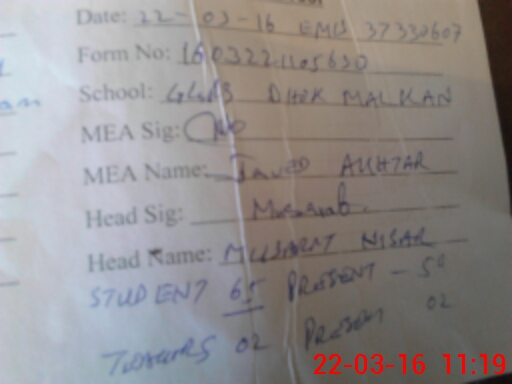 Date: 22-03-16 EMIS 37330607
Form No: 1603221105630
School: GGPS DHOK MALKAN
MEA Sig:
MEA Name: JAVED AKHTAR
Head Sig: Musarat
Head Name: MUSARAT NISAR
STUDENT 65 PRESENT - 50
TEACHERS 02 PRESENT 02
22-03-16 11:19